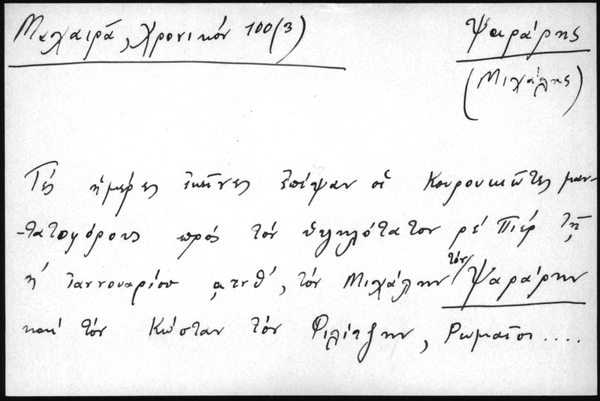 Μαχαιρᾶ, Χρονικόν 100(3)
Ψαράρης
(Μιχάλης)
Τές ἡμέρες ἐκεῖνες ἔπεψαν οἱ Κουρουκιῶτες μαν-
-τατοφόρους πρὸς τὸν ὑψηλότατον ρὲ Πιέρ τῇ
η' ἰαννουαρίου ͵ατνθ', τὸν Μιχάλην τὸν Ψαράρην
καὶ τὸν Κώσταν τὸν Φιλίτζην, Ρωμαῖοι ....